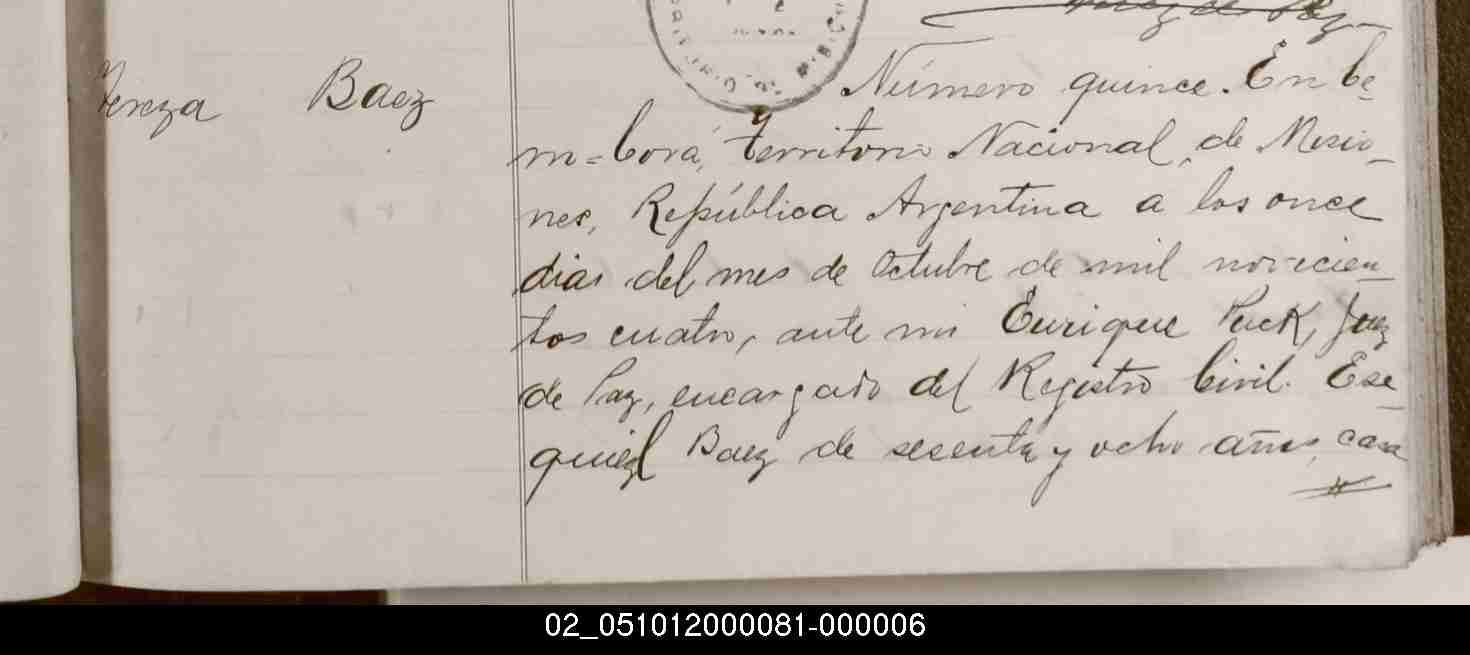 Juez de Paz
Tereza Baez
Número quince. En Ce-
m=borá, territorio Nacional, de Misio-
nes, República Argentina a los once
dias del mes de Octubre de mil novecien-
tos cuatro, ante mi Enrique Puck, Juez
de Paz, encargado del Registro Civil. Ese-
quiel Baez de sesenta y ocho años, casa
02_051012000081-000006